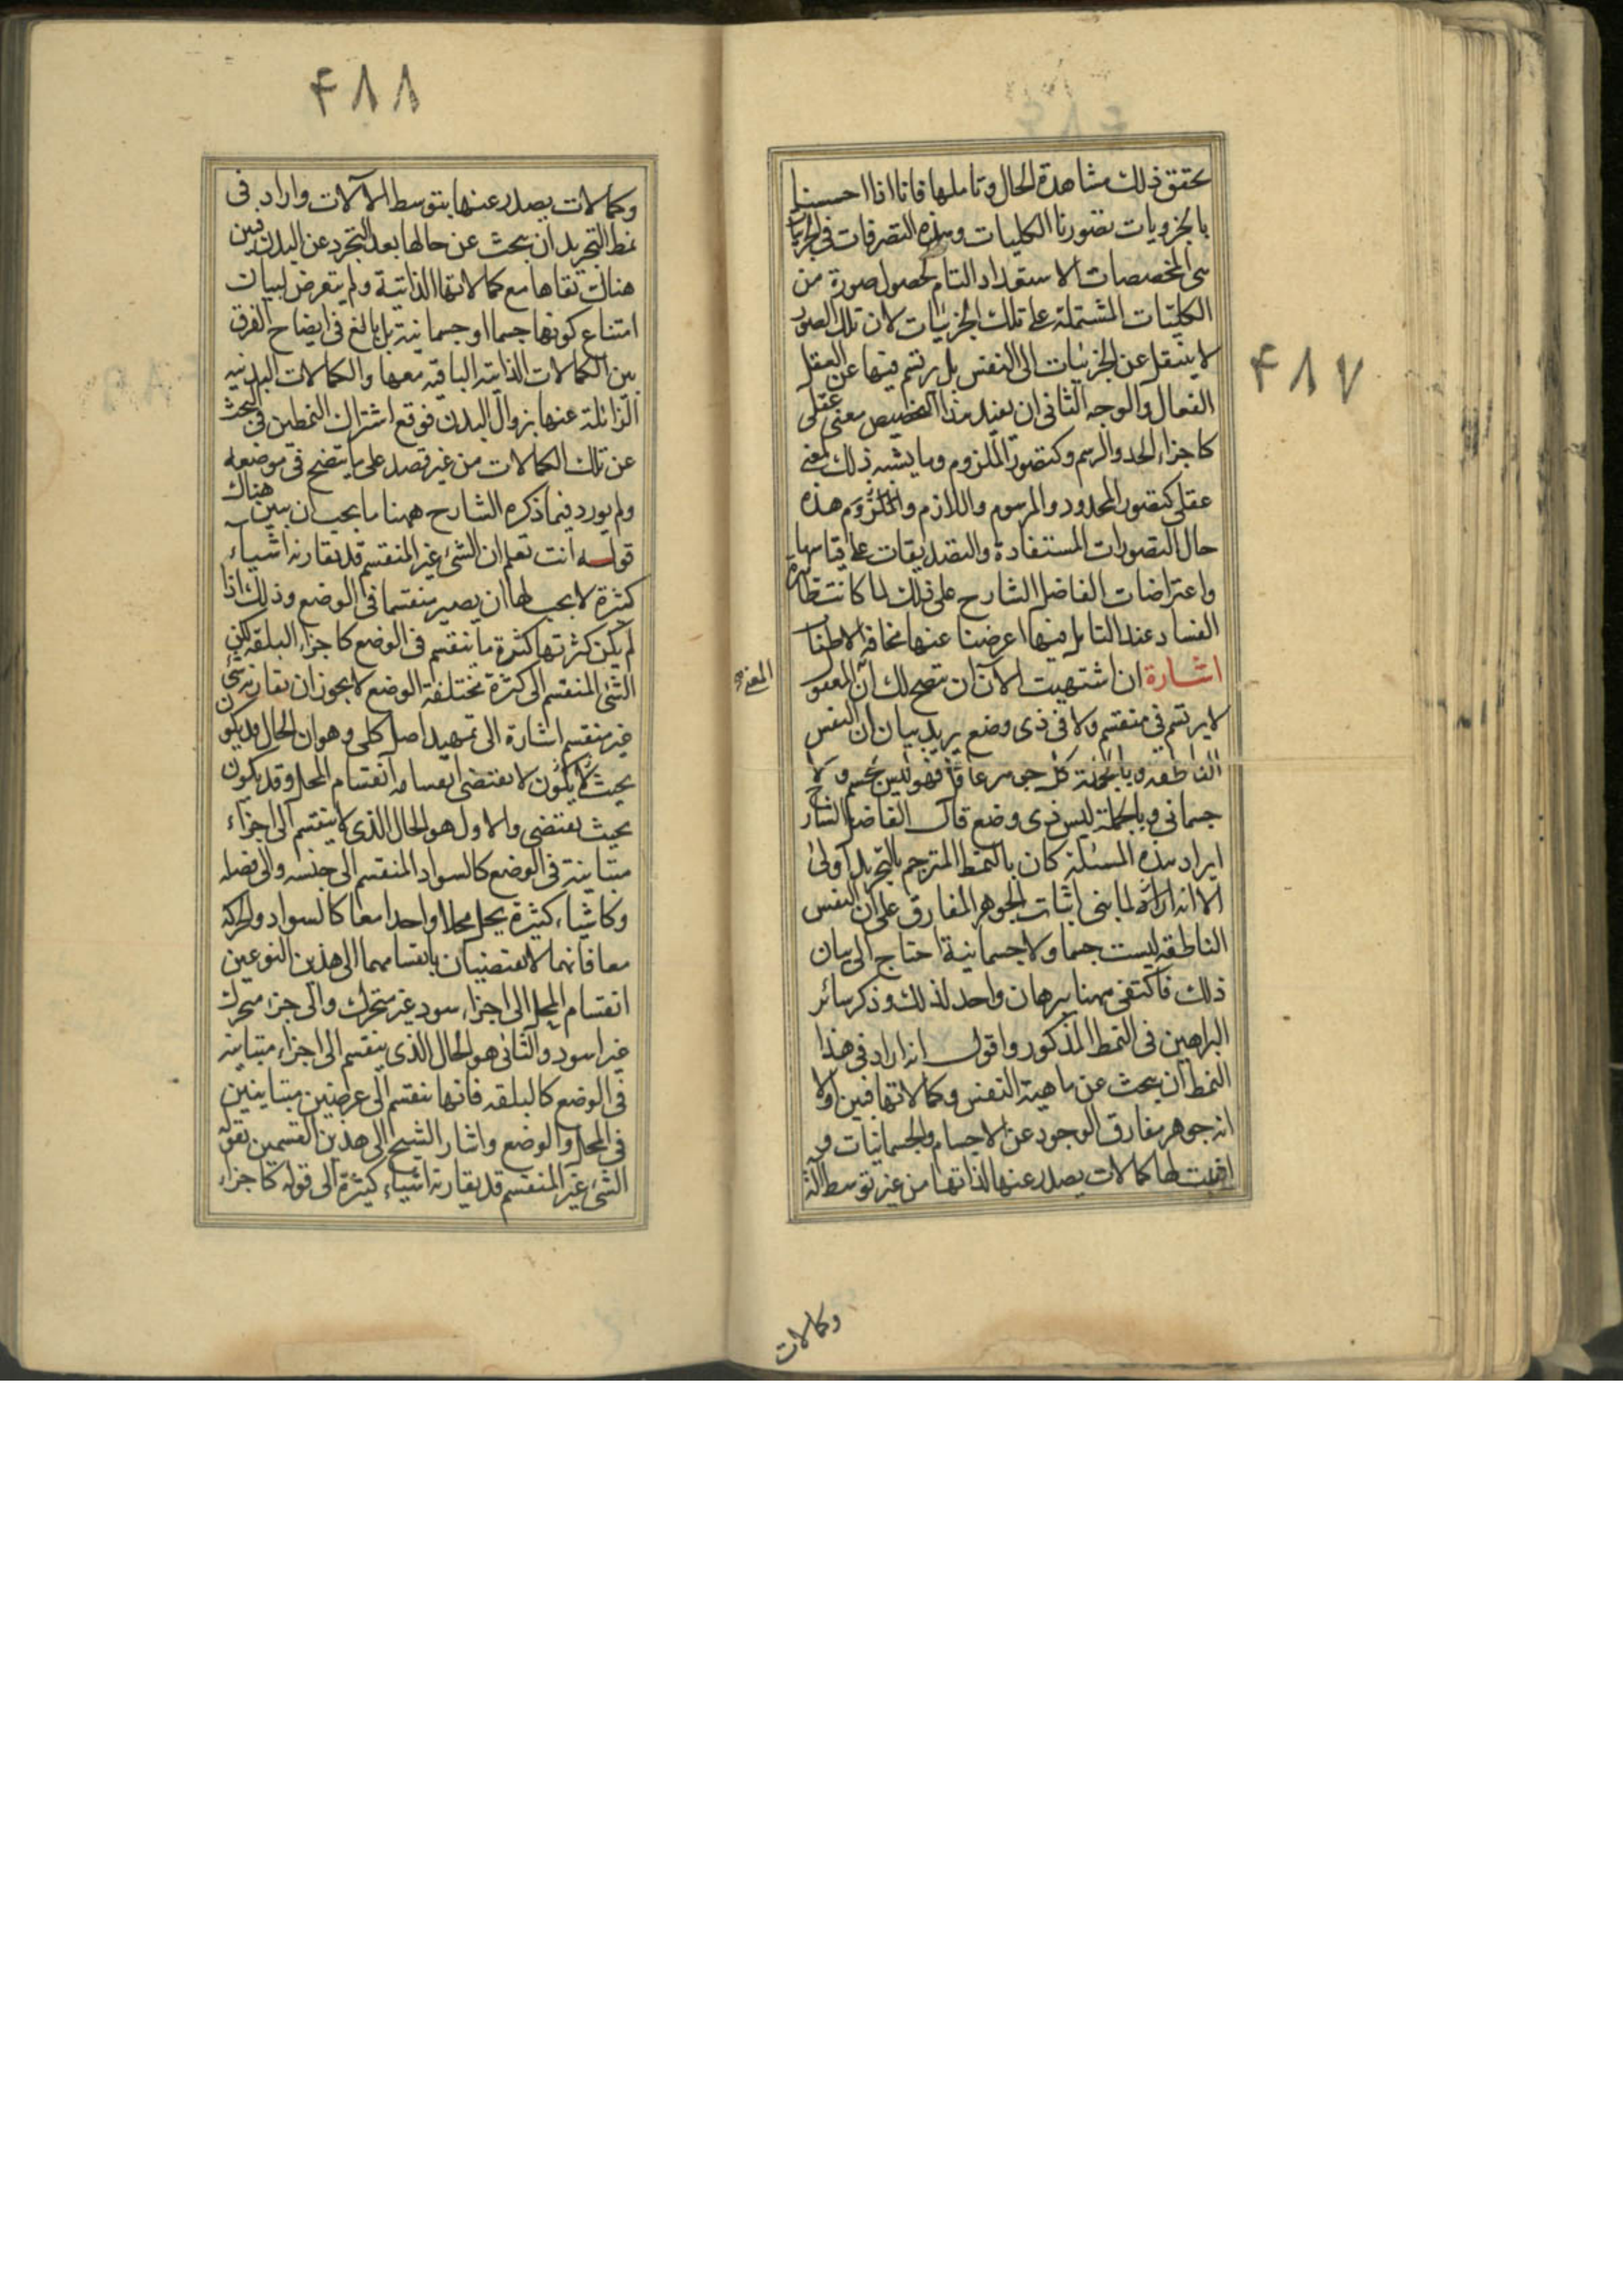 ۴۸۷
تحقق ذلك مشاهدة الحال وتاملها فانا اذا احسسنا
بالجزويات تصورنا الكليات وهذه التصرفات فى الجزئيات
هى المخصصات الاستعداد التام لحصول صورة من
الكليات المشتملة على تلك الجزئيات لان تلك الصور
لا ينتقل عن الجزئيات الى النفس بل يرتسم فيها عن العقل
الفعال والوجه الثانى ان يفيد هذا التخصيص معنى عقلى
كاجزاء الحد والرسم وكتصور الملزوم وما يشبه ذلك لمعنى
عقلى كتصور المحدود والمرسوم واللازم والملزوم هذه
حال التصورات المستفادة والتصديقات على قياسها
واعتراضات الفاضل الشارح على ذلك لما كانت ظاهرة
الفساد عند التامل فيها اعرضنا عنها مخافة الاطناب
اشارة ان اشتهيت الآن ان تتضح لك ان المعقو
المعنى
لا يرتسم فى منقسم ولا فى ذى وضع يريد بيان ان النفس
الناطقه وبالجملة كل جوهر عاقل فهو ليس بجسم ولا
جسمانى وبالجملة ليس ذى وضع قال الفاضل الشارح
ايراد هذه المسئلة كان بالنمط المترجم بالتجريد اولى
الا انه اراد لما بنى اثبات الجوهر المفارق على ان النفس
الناطقه ليست جسما ولا جسمانية احتاج الى بيان
ذلك فاكتفى ههنا ببرهان واحد لذلك وذكر سائر
البراهين فى النمط المذكور واقول انه اراد فى هذا
النمط ان يبحث عن ماهية النفس وكمالاتها فبين اولا
انه جوهر مفارق الوجود عن الاجسام والجسمانيات و
اثبت لها كمالات يصدر عنها لذاتها من غير توسط آلة
وكمالات
۴۸۸
وكمالات يصدر عنها بتوسط الآلات واراد فى
نمط التجريد ان يبحث عن حالها بعد التجرد عن البدن فبين
هناك بقاها مع كمالاتها الذاتية ولم يتعرض لبيان
امتناع كونها جسما او جسمانية بل بالغ فى ايضاح الفرق
بين الكمالات الذاتيه الباقيه معها والكمالات البدنيه
الزائلة عنها بزوال البدن فوقع اشتراك النمطين فى البحث
عن تلك الكمالات من غير قصد على ما يتضح فى موضعه
ولم يورد فيما ذكره الشارح ههنا ما يجب ان يبين هناك
قوله انت تعلم ان الشئ غير المنقسم قد يقارنه اشياء
كثيرة لا يجب لها ان يصير منقسما فى الوضع وذلك اذا
لم يكن كثرتها كثرة ما ينقسم فى الوضع كاجزاء البلقه لكن
الشئ المنقسم الى كثرة مختلفة الوضع لا يجوز ان يقارنه شئ
غير منقسم اشارة الى تمهيد اصل كلى وهو ان الحال قد يكون
بحيث لا يكون لا يقتضى انقسامه انقسام المحل وقد يكون
بحيث يقتضى والاول هو الحال الذى لا ينقسم الى اجزاء
متباينة فى الوضع كالسواد المنقسم الى جنسه والى فصله
وكاشياء كثيرة يحل محلا واحدا معا كالسواد والحركه
معا فانهما لا يقتضيان بانقسامهما الى هذين النوعين
انقسام المحل الى اجزاء سود غير متحرك والى جزء متحرك
غير اسود والثانى هو الحال الذى ينقسم الى اجزاء متباينه
فى الوضع كالبلقه فانها ينقسم الى عرضين متباينين
فى المحل والوضع واشار الشيخ الى هذين القسمين بقوله
الشئ غير المنقسم قد يقارنه اشياء كثيرة الى قوله كاجزاء